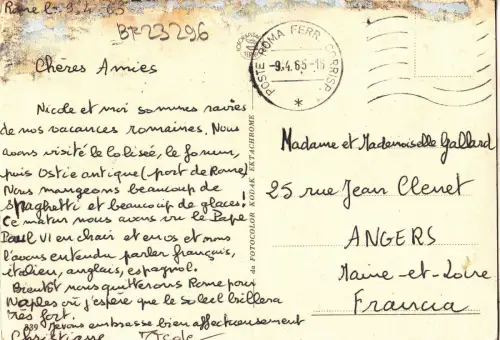 Rome le 9.4.65
BF23296
Chères Amies
Nicole et moi sommes ravies
de nos vacances romaines. Nous
avons visité le Colisée, le forum,
puis Ostie antique (port de Rome)
Nous mangeons beaucoup de
spaghetti et beaucoup de glaces.
Ce matin nous avons vu le Pape
Paul VI en chair et en os et nous
l'avons entendu parler français,
italien, anglais, espagnol.
Bientôt nous quitterons Rome pour
Naples où j'espère que le soleil brillera
très fort.
Je vous embrasse bien affectueusement
Christiane Nicole
339
da FOTOCOLOR KODAK EKTACHROME
POSTE ROMA FERR. CORRISP.
-9.4.65-
Madame et Mademoiselle Gallard
25 rue Jean Clenet
ANGERS
Maine-et-Loire
Francia